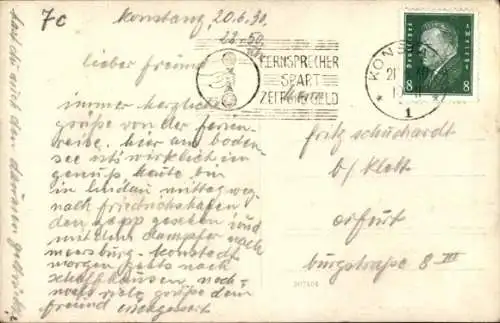 7c
Konstanz, 20.6.30.
22.50
lieber freund
immer herzliche
grüße von der ferien-
reise. hier am boden-
see ists wirklich ein
genuß. heute bin
in lindau mittag weg
nach friedrichshafen
den zepp gesehen und
mit dem dampfer nach
meersburg-konstadt
morgen gehts nach
schaffhausen noch-
mals viele grüße dein
freund
FERNSPRECHER
SPART
ZEIT UND GELD
KONST
1
Deutsches Reich
8 8
herrn
fritz schuchardt
b/ klett
erfurt
burgstraße 8 III